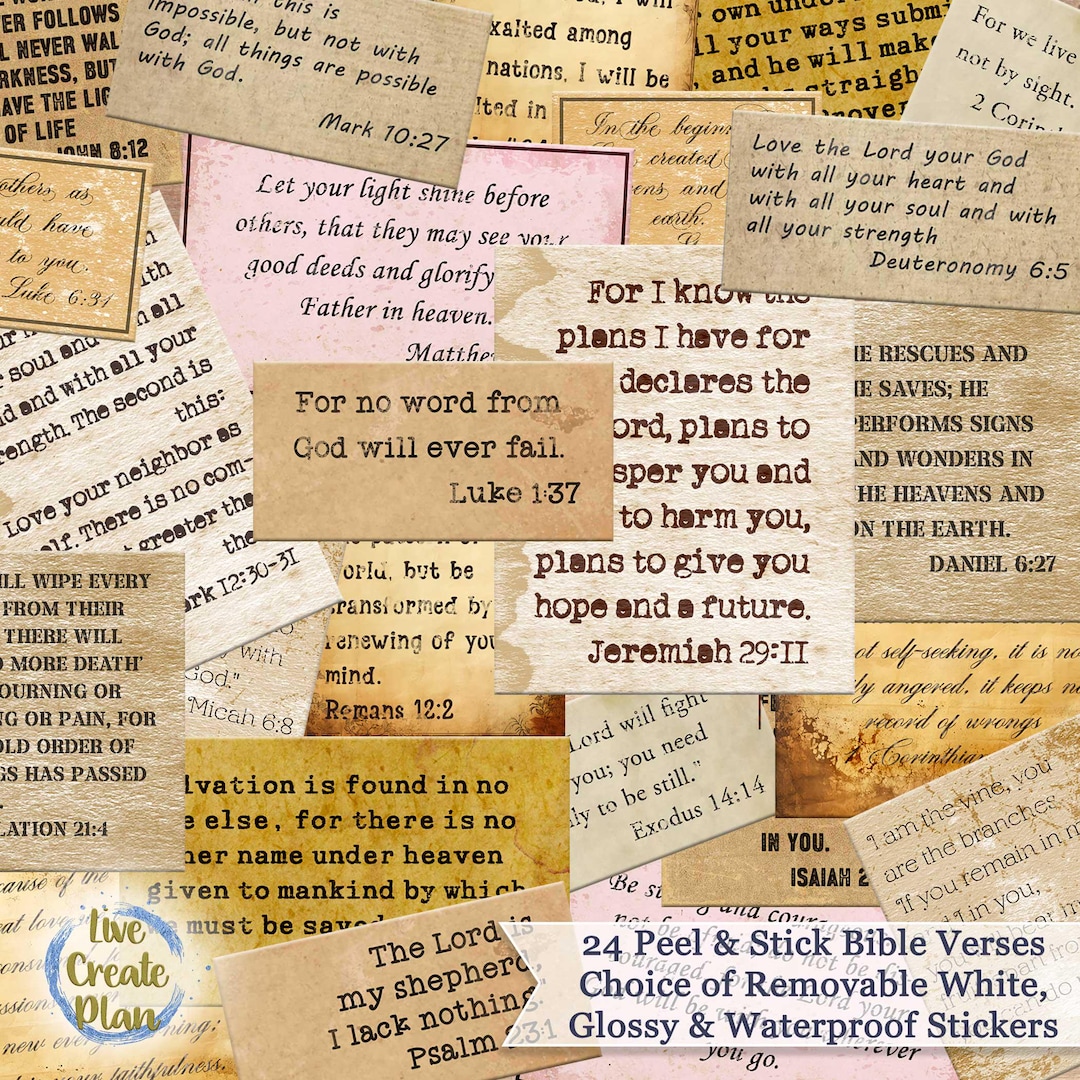 ER FOLLOWS
NEVER WAL
RKNESS, BUT
AVE THE LIG
OF LIFE
JOHN 8:12
this is
impossible, but not with
God; all things are possible
with God.
Mark 10:27
I will
exalted among
nations, I will be
lted in
own under
your ways submi
and he will make
straigh
For we live
not by sight.
2 Corint
In the beginn
created
ens, and
earth.
Love the Lord your God
with all your heart and
with all your soul and with
all your strength
Deuteronomy 6:5
others as
uld have
to you.
Luke 6:31
Let your light shine before
others, that they may see your
good deeds and glorify
Father in heaven.
Matthe
ith
all
r soul and with all your
d and with all your
rength. The second is
this:
Love your neighbor as
elf. There is no com-
t greater tha
the
ark 12:30-31
For I know the
plans I have for
declares the
ord, plans to
sper you and
to harm you,
plans to give you
hope and a future.
Jeremiah 29:11
For no word from
God will ever fail.
Luke 1:37
E RESCUES AND
E SAVES; HE
PERFORMS SIGNS
AND WONDERS IN
HE HEAVENS AND
ON THE EARTH.
DANIEL 6:27
ILL WIPE EVERY
FROM THEIR
THERE WILL
O MORE DEATH'
OURNING OR
NG OR PAIN, FOR
OLD ORDER OF
GS HAS PASSED
LATION 21:4
orld, but be
transformed by
renewing of you
mind.
Romans 12:2
with
God."
Micah 6:8
ot self-seeking, it is no
ly angered, it keeps n
record of wrongs
1 Corinthian
Lord will fight
you; you need
ly to be still."
Exodus 14:14
lvation is found in no
e else, for there is no
her name under heaven
given to mankind by which
e must be saved
IN YOU.
ISAIAH 2
"I am the vine, you
are the branches.
"If you remain in m
d I in you,
cause of the
at lov
new every morning;
your faithfulness.
The Lord is
my shepherd,
I lack nothing
Psalm 23:1
Be st
and courag
not be
do not be
couraged, for the Lord your
will be with
wherever
you go.
Live
Create
Plan
24 Peel & Stick Bible Verses
Choice of Removable White,
Glossy & Waterproof Stickers